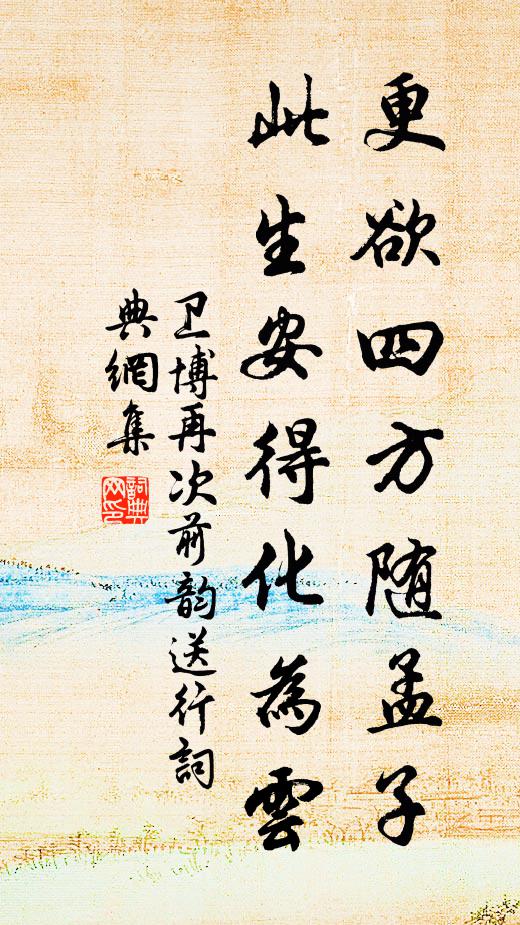 更欲四方随孟子
此生安得化為雲
卫博再次前韵送行詞
典網集
詞典网印